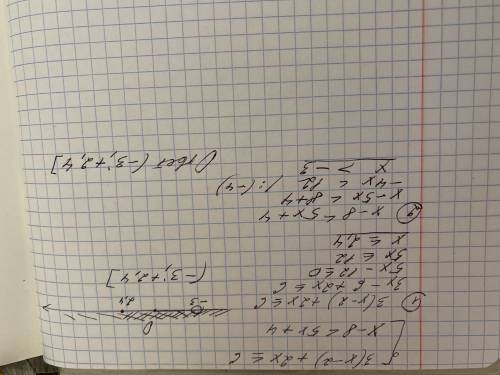 3(x-2) + 2x ≤ 6
x-8 < 5x+4
① 3(x-2) + 2x ≤ 6
3x - 6 + 2x ≤ 6
5x - 12 ≤ 0
5x ≤ 12
x ≤ 2,4
② x-8 < 5x+4
x-5x < 8+4
-4x < 12 | :(-4)
x > -3
-3 0 2,4
(-3; +2,4]
Ответ (-3; +2,4]